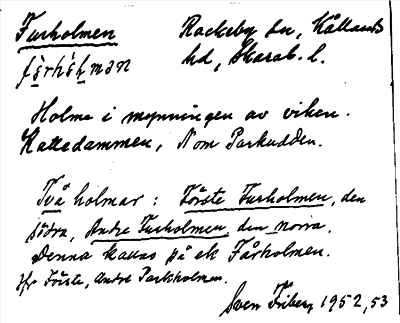 Furholmen Rackeby sn, Kållands
hd, Skarab. l.
Holme i mynningen av viken.
Kattedammen, N om Parkudden.
Två holmar: Förste Furholmen, den
södra, Andre Furholmen, den norra.
Denna kallas på ek Fårholmen.
Jfr Förste, Andre Parkholmen.
Sven Friberg 1952, 53